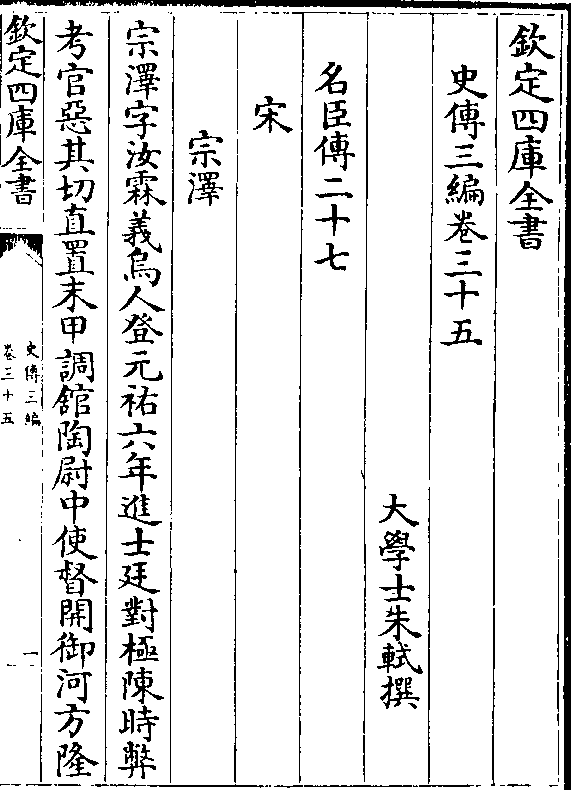 欽定四庫全書
史傳三編卷三十五
大學士朱軾撰
名臣傳二十七
宋
宗澤
宗澤字汝霖義烏人登元祐六年進士廷對極陳時弊
考官惡其切直置末甲調舘陶尉中使督開御河方隆
欽定四庫全書
史傳三編
卷三十五
一